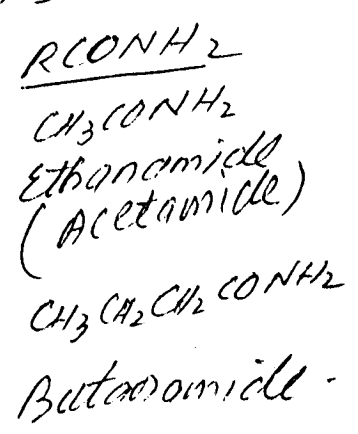 RCONH2
CH3CONH2
Ethanamide
(Acetamide)
CH3CH2CH2CONH2
Butanamide.